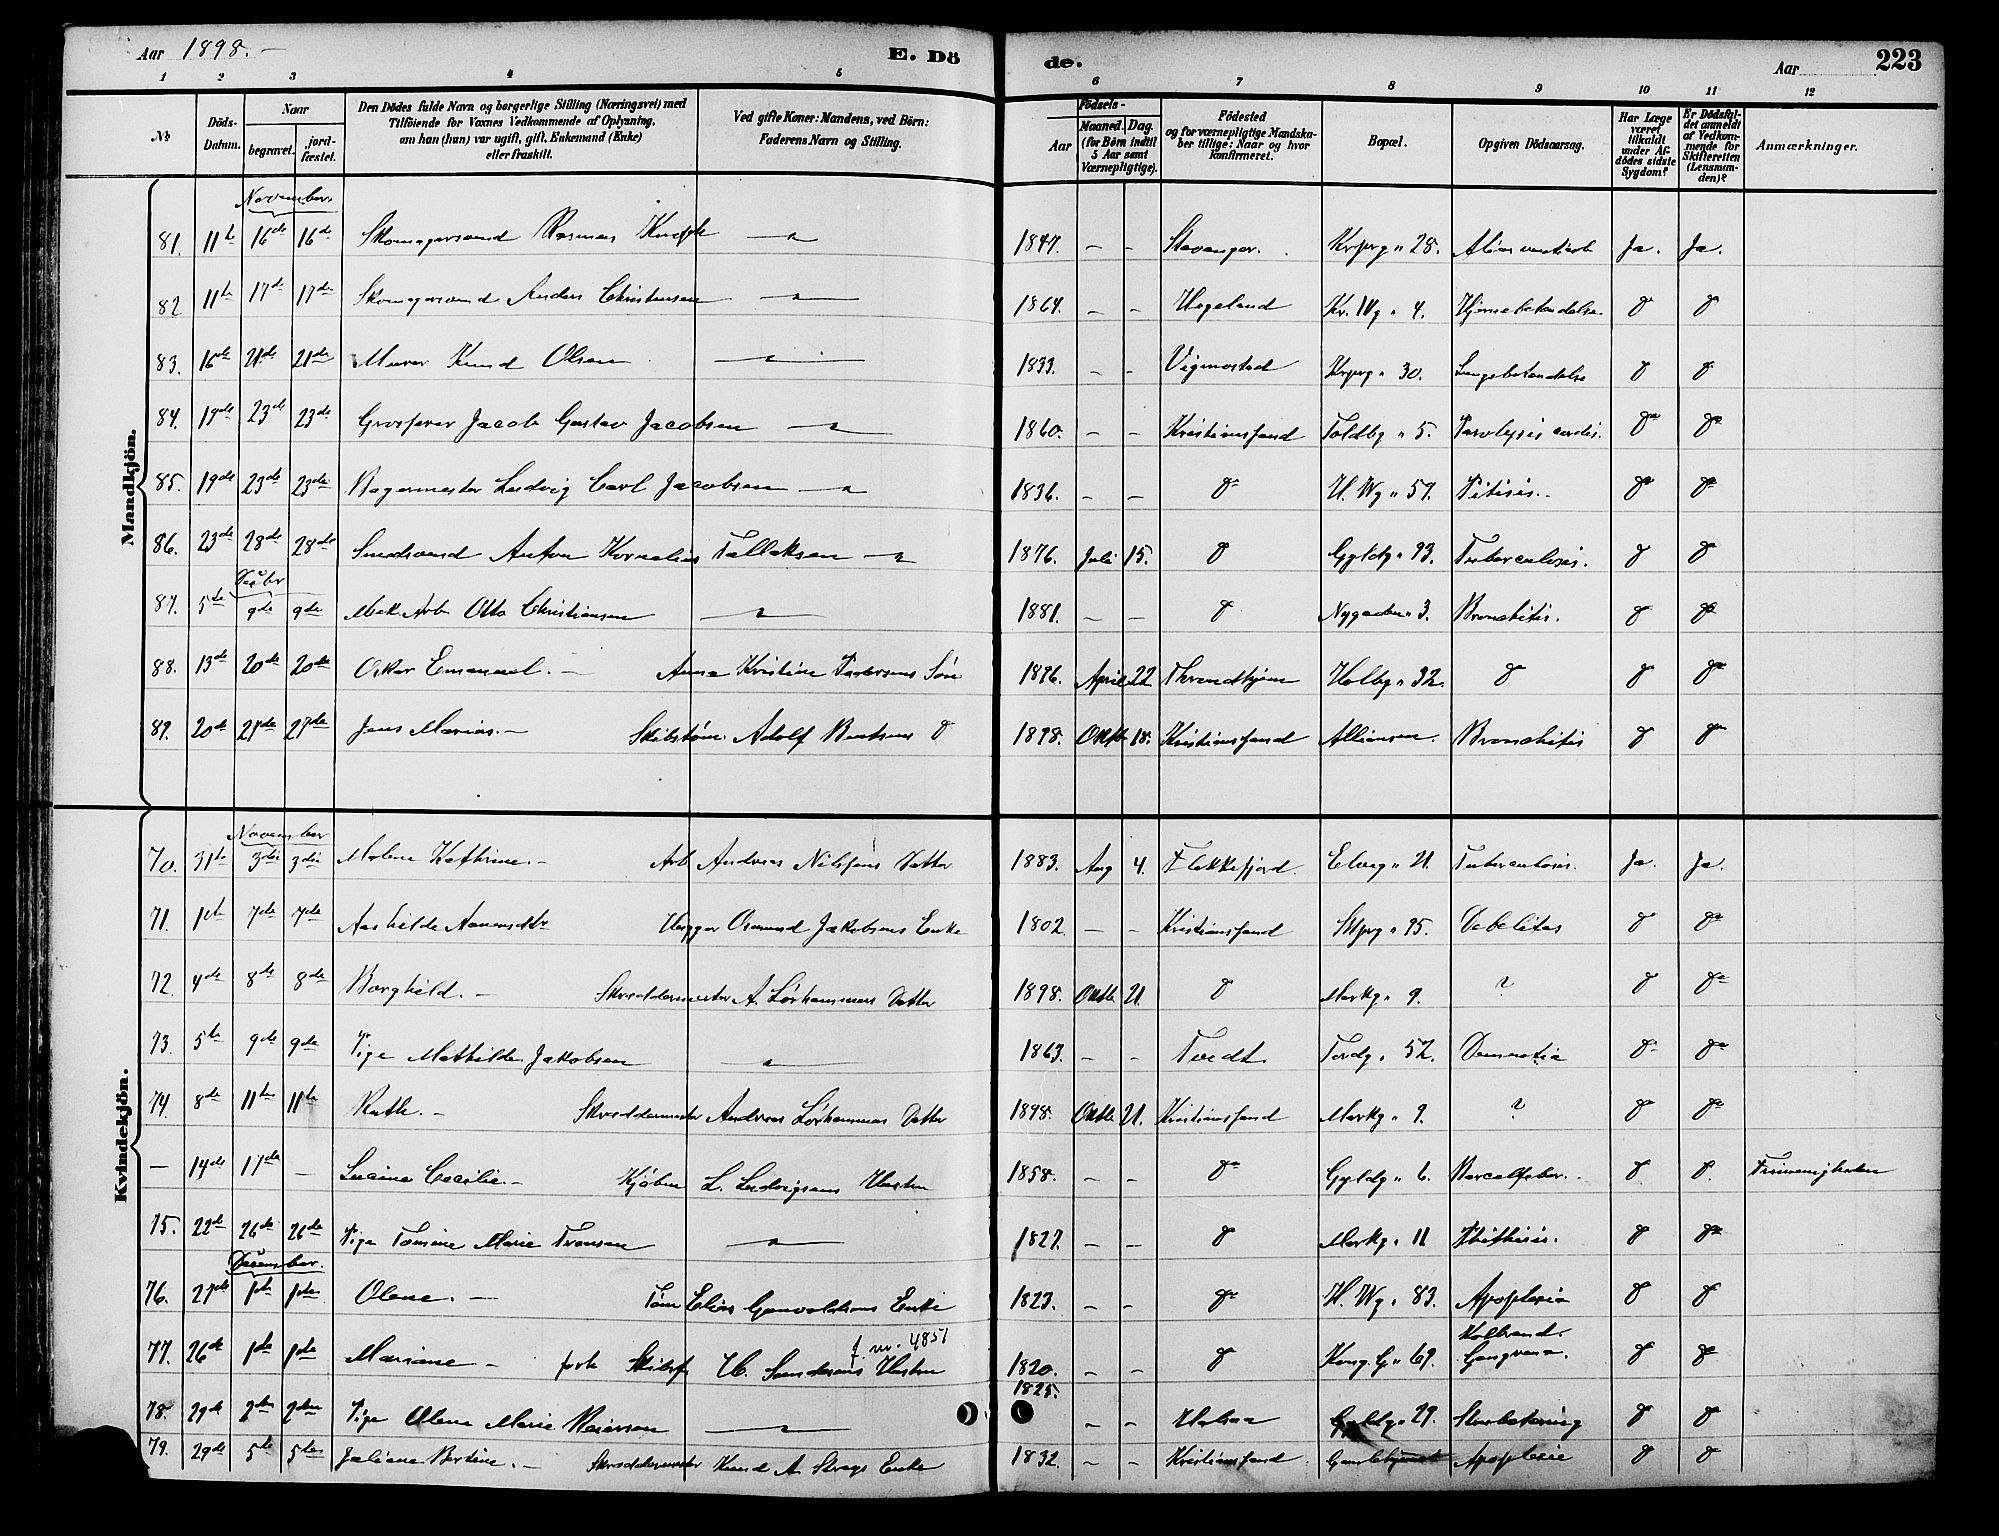 Aar 1898. –
E. Dö
de.
Aar
223
1 2 3 4 5 6 7 8 9 10 11 12
No
Döds-Datum.
Naar
begravet.
jord-fæstet.
Den Dödes fulde Navn og borgerlige Stilling (Næringsvei) med
Tilföiende for Voxnes Vedkommende af Oplysning,
om han (hun) var ugift, gift, Enkemand (Enke)
eller fraskilt.
Ved gifte Koner: Mandens, ved Börn:
Faderens Navn og Stilling.
Födsels-
Aar
Maaned. Dag.
(for Börn indtil
5 Aar samt
Værnepligtige).
Födested
og for værnepligtige Mandska-
ber tillige: Naar og hvor
konfirmeret.
Bopæl.
Opgiven Dödsaarsag.
Har Læge
været
tilkaldt
under Af-
dödes sidste
Sygdom?
Er Dödsfal-
det anmeldt
af Vedkom-
mende for
Skifteretten
(Lensman-
den)?
Anmærkninger.
Mandkjön.
November
81. 11te 16de 16de Skomagersvend Rasmus 1847. – – Stavanger. Krprg " 28. Ja. Ja.
82 11te 17de 17de Skomagersvend Anders Christensen 1864. – – Hegeland Kr. IVg " 4. Hjernebetændelse
83. 16de 21de 21de Murer Knud Olsen 1833. – – Vigmostad Krprg " 30. Lungebetændelse
84. 19de 23de 23de Grosserer Jacob Gustav Jacobsen 1860. – – Kristianssand Toldbg " 5. Paralysis cordis.
85. 19de 23de 23de Bagermester Ludvig Carl Jacobsen 1836. – – do H. Wg " 57.
86. 23de 28de 28de Smedsvend Anton Kornelius Tallaksen 1876. Juli 15. do Gyldg " 93. Tuberculosis.
Decbr
87. 5te 9de 9de Mek Arb Otto Christiansen 1881. – – do Nygaden " 3. Bronchitis.
88. 13de 20de 20de Oskar Emanuel. – Anna Kristine Pedersens Søn 1896. April 22 Throndhjem Holbg " 32 do
89. 20de 27de 27de Jens Marius. – Skibstøm. Adolf Bentsens do 1898. Oktb 18. Kristianssand Alliansen. Bronchitis
Kvindekjön.
November
70. 31te 3die 3die Malene Kathrine. – Arb Andreas Nilssens Datter 1883. Aug 4. Flekkefjord. Elveg " 21. Tuberculosis. Ja. Ja.
71. 1ste 7de 7de Aashilde Aanensdtr Osmund Jakobsens Enke 1802. – – Kristianssand " 95. Debelitas
72. 4de 8de 8de Borghild. – Skreddermester A. Lørhammers Datter 1898. Oktb 21. do Markg " 9. ?
73. 5te 9de 9de Pige Mathilde Jakobsen 1863. – – Tvedt. Tordg. 52. Dementia
74. 8de 11te 11te Ruth. – Skreddermester Andreas Lørhammers Datter 1898. Oktb 21. Kristianssand Markg " 9. ?
– 14de 17de – Lucina Cecilie. – Kjøbm L. Ludvigsens Hustru 1858. – – do Gyldg " 6. Barselfeber. Frimenigheden
75. 22de 26de 26de Pige Tomine Marie Transen 1827. – – do Markg " 11
December.
76. 27de 1ste 1ste Olene. – Tøm Elias Gunvaldsens Enke 1823. – – do H. Wg " 83. Apoplexia
77. 26de 1ste 1ste Mariane – forh Skibsf H. Sandersens Hustru f. nr. 4851 1820. – – do Kong.G " 69. Koldbrand. Gangræna.
78. 29de 2den 2den Pige Olene Marie Reiersen 1825. – – Halsaa Gyldg " 29.
79. 29de 5te 5te Juliane Bertine. – Skreddermester Knud A Strays Enke 1832. – – Kristianssand. Apoplexie